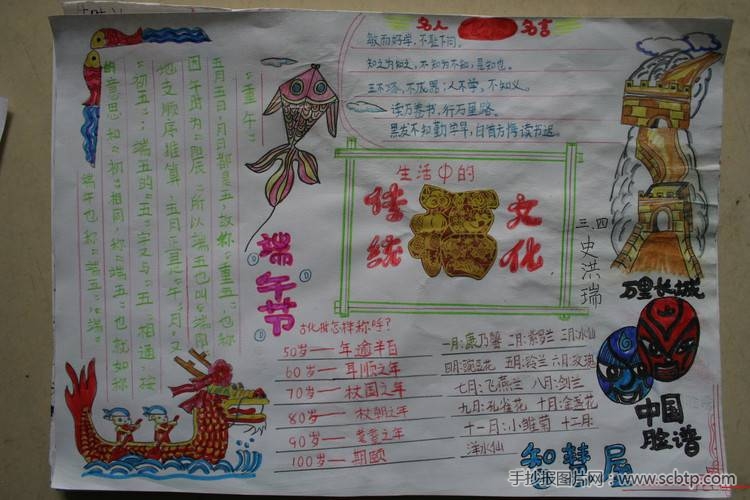 名人
名言
敏而好学，不耻下问。
知之为知之，不知为不知，是知也。
玉不琢，不成器；人不学，不知义。
读万卷书，行万里路。
黑发不知勤学早，白首方悔读书迟。
生活中的
传统
文化
三.四
史洪瑞
万里长城
中国
脸谱
端午节
端午也称“端五”，“端”
的意思和“初”相同，称“端五”也就如称
“初五”；端五的“五”字又与“午”相通，按
地支顺序推算，五月正是“午”月。又
因午时为“阳辰”，所以端五也叫“端阳”
五月五日，月、日都是五，故称“重五”，也称
“重午”
古代指怎样称呼？
50岁——年逾半百
60岁——耳顺之年
70岁——杖国之年
80岁——杖朝之年
90岁——耄耋之年
100岁——期颐
一月：康乃馨 二月：紫罗兰 三月：水仙
四月：豌豆花 五月：铃兰 六月：玫瑰
七月：飞燕兰 八月：剑兰
九月：孔雀花 十月：金盏花
十一月：小雏菊 十二月：
洋水仙
智慧屋
手抄报图片网：www.scbtp.com